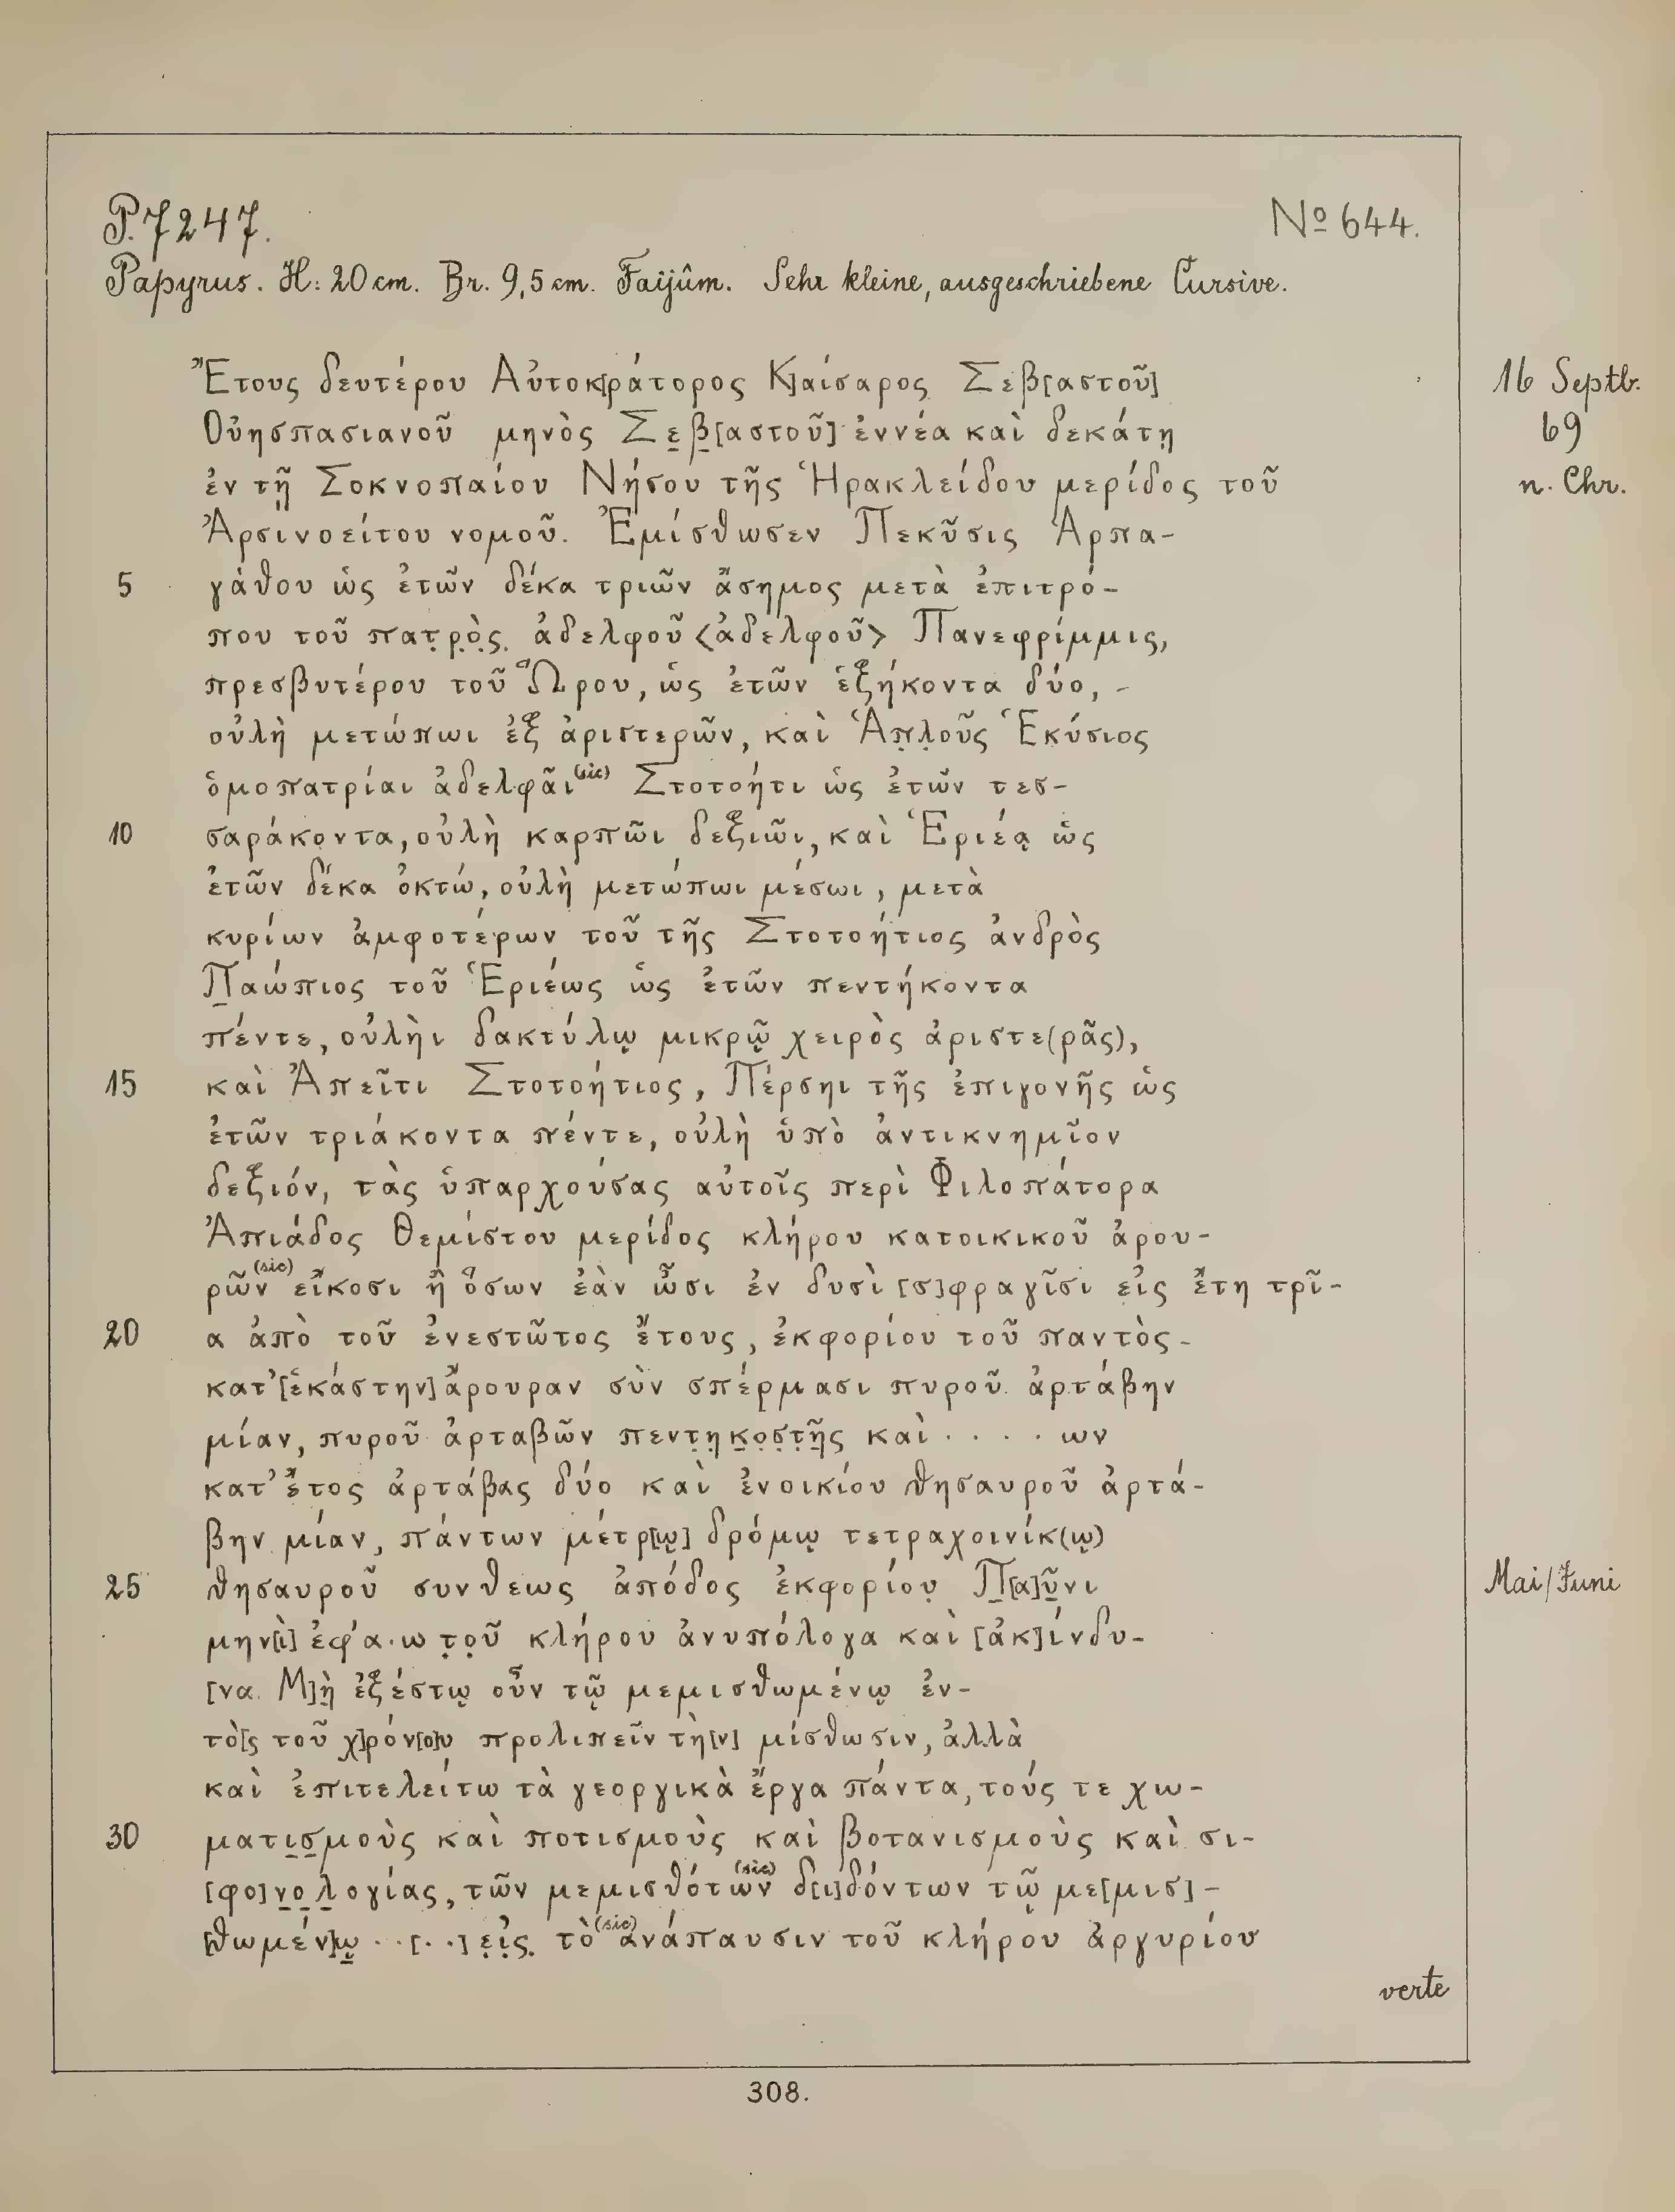 P. 7247.
No 644.
Papyrus. H: 20 cm. Br. 9,5 cm. Faijûm. Sehr kleine, ausgeschriebene Cursive.
Ἔτους δευτέρου Αὐτοκ[ράτορος Κ]αίσαρος Σεβ[αστοῦ]
16 Septb.
Οὐησπασιανοῦ μηνὸς Σε̣β̣[αστοῦ] ἐννέα καὶ δεκάτῃ
69
ἐν τῇ Σοκνοπαίου Νήσου τῆς Ἡρακλείδου μερίδος τοῦ
n. Chr.
Ἀρσινοείτου νομοῦ. Ἐμίσθωσεν Πεκῦσις Ἁρπα-
5 γάθου ὡς ἐτῶν δέκα τριῶν ἄσημος μετὰ ἐπιτρό-
που τοῦ πατ̣ρ̣ὸ̣ς̣ ἀδελφοῦ <ἀδελφοῦ> Πανεφρίμμις,
πρεσβυτέρου τοῦ Ὥρου, ὡς ἐτῶν ἑξήκοντα δύο, -
οὐλὴ μετώπωι ἐξ ἀριστερῶν, καὶ Ἁπ̣λ̣οῦς Ἑκύσιος
ὁμοπατρίαι ἀδελφᾶι (sic) Στοτοήτι ὡς ἐτῶν τεσ-
10 σαράκο̣ντα, οὐλὴ καρπῶι δεξιῶι, καὶ Ἑριέᾳ ὡς
ἐτῶν δέκα ὀκτώ, οὐλὴ μετώπωι μέσωι, μετὰ
κυρίων ἀμφοτέρων τοῦ τῆς Στοτοήτιος ἀνδρὸς
Π̣αώπιος τοῦ Ἑριέως ὡς ἐτῶν πεντήκοντα
πέντε, οὐλὴι δακτύλῳ μικρῷ χειρὸς ἀριστε(ρᾶς),
15 καὶ Ἀπεῖτι Στοτοήτιος, Πέρσηι τῆς ἐπιγονῆς ὡς
ἐτῶν τριάκοντα πέντε, οὐλὴ ὑπὸ ἀντικνημῖον
δεξιόν, τὰς ὑπαρχούσας αὐτοῖς περὶ Φιλοπάτορα
Ἀπιάδος Θεμίστου μερίδος κλήρου κατοικικοῦ ἀρου-
ρῶν (sic) εἴκοσι ἢ ὅσων ἐὰν ὦσι ἐν δυσὶ [σ]φραγῖσι εἰς ἔτη τρῖ-
20 α ἀπὸ τοῦ ἐνεστῶτος ἔτους, ἐκφορίου τοῦ παντὸς -
κατ' [ἑκάστην] ἄρουραν σὺν σπέρμασι πυροῦ ἀρτάβην
μίαν, πυροῦ ἀρταβῶν πεντ̣η̣κ̣ο̣σ̣τ̣ῆ̣ς καὶ · · · · ων
κατ' ἔτος ἀρτάβας δύο καὶ ἐνοικίου θησαυροῦ ἀρτά-
βην μίαν, πάντων μέτρ[ῳ] δρόμῳ τετραχοινίκ(ῳ)
25 θησαυροῦ συνθεως ἀπόδος ἐκφορίου̣ Π̣[α]ῦ̣νι
Mai/Juni
μην[ὶ] ἐφ' α·ω τ̣ο̣ῦ κλήρου ἀνυπόλογα καὶ [ἀκ]ίνδυ-
[να. Μ]ὴ̣ ἐξέστῳ οὖν τῷ μεμισθωμένῳ ἐν-
τὸ[ς τοῦ χ]ρόν[ο]υ προλιπεῖν τὴ[ν] μίσθωσιν, ἀλλὰ
καὶ ἐπιτελείτω τὰ γεοργικὰ ἔργα πάντα, τούς τε χω-
30 ματι̣σ̣μοὺς καὶ ποτισμοὺς καὶ βοτανισμοὺς καὶ σι-
[φο]ν̣ο̣λ̣ογίας, τῶν μεμισθότων (sic) δ[ι]δόντων τῷ με[μισ]-
[θωμέν]ῳ̣ · · [· ·] ε̣ἰ̣ς̣ τὸ (sic) ἀνάπαυσιν τοῦ κλήρου ἀργυρίου
verte
308.